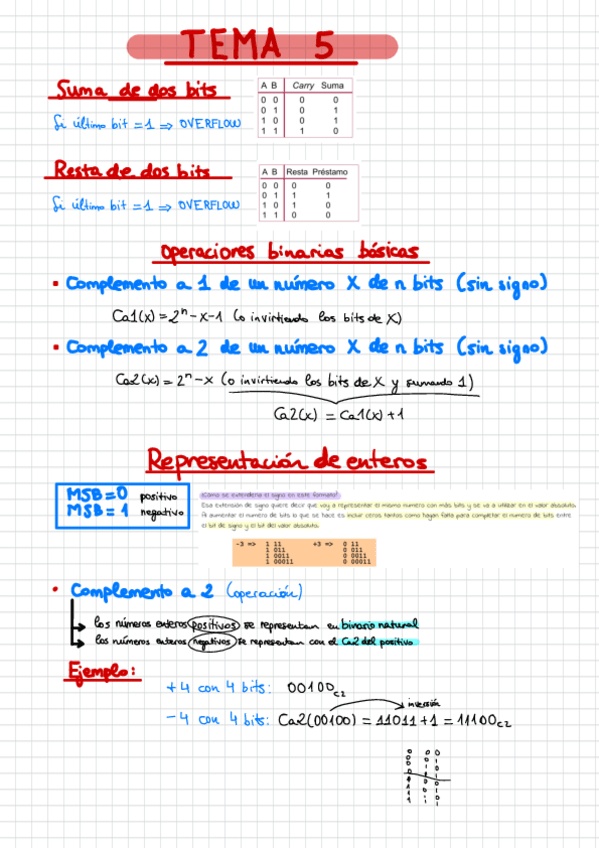 TEMA 5
Suma de dos bits
Si último bit = 1 ⇒ OVERFLOW
A B Carry Suma
0 0 0 0
0 1 0 1
1 0 0 1
1 1 1 0
Resta de dos bits
Si último bit = 1 ⇒ OVERFLOW
A B Resta Préstamo
0 0 0 0
0 1 1 1
1 0 1 0
1 1 0 0
Operaciones binarias básicas
• Complemento a 1 de un número X de n bits (sin signo)
Ca1(x) = 2ⁿ - x - 1 (o invirtiendo los bits de X)
• Complemento a 2 de un número X de n bits (sin signo)
Ca2(x) = 2ⁿ - x (o invirtiendo los bits de X y sumando 1)
Ca2(x) = Ca1(x) + 1
Representación de enteros
MSB = 0 positivo
MSB = 1 negativo
¿Cómo se extendería el signo en este formato?
Esa extensión de signo quiere decir que voy a representar el mismo número con más bits y se va a utilizar en el valor absoluto.
Al aumentar el número de bits lo que se hace es incluir ceros tantos como hagan falta para completar el número de bits entre
el bit de signo y el bit del valor absoluto.
-3 => 1 11 +3 => 0 11
1 011 0 011
1 0011 0 0011
1 00011 0 00011
• Complemento a 2 (operación)
los números enteros positivos se representan en binario natural
los números enteros negativos se representan con el Ca2 del positivo
Ejemplo:
+4 con 4 bits: 00100c2
inversión
-4 con 4 bits: Ca2(00100) = 11011 + 1 = 11100c2